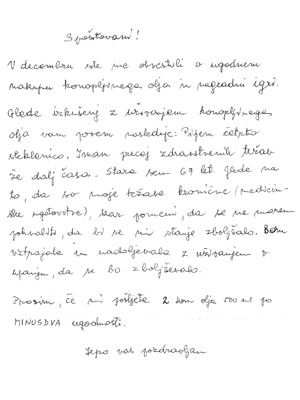 Spoštovani!
V decembru ste me obvestili o ugodnem
nakupu konopljinega olja in nagradni igri.
Glede izkušenj z uživanjem konopljinega
olja vam povem naslednje: Pijem četrto
steklenico. Imam precej zdravstvenih težav
že dalj časa. Stara sem 69 let. Glede na
to, da so moje težave kronične (medicin-
ske ugotovitve), kar pomeni, da se ne morem
pohvaliti, da bi se mi stanje zboljšalo. Bom
vztrajala in nadaljevala z uživanjem v
upanju, da se bo zboljševalo.
Prosim, če mi pošljete 2 kom olja 500 ml po
MINUSDVA ugodnosti.
Lepo vas pozdravljam